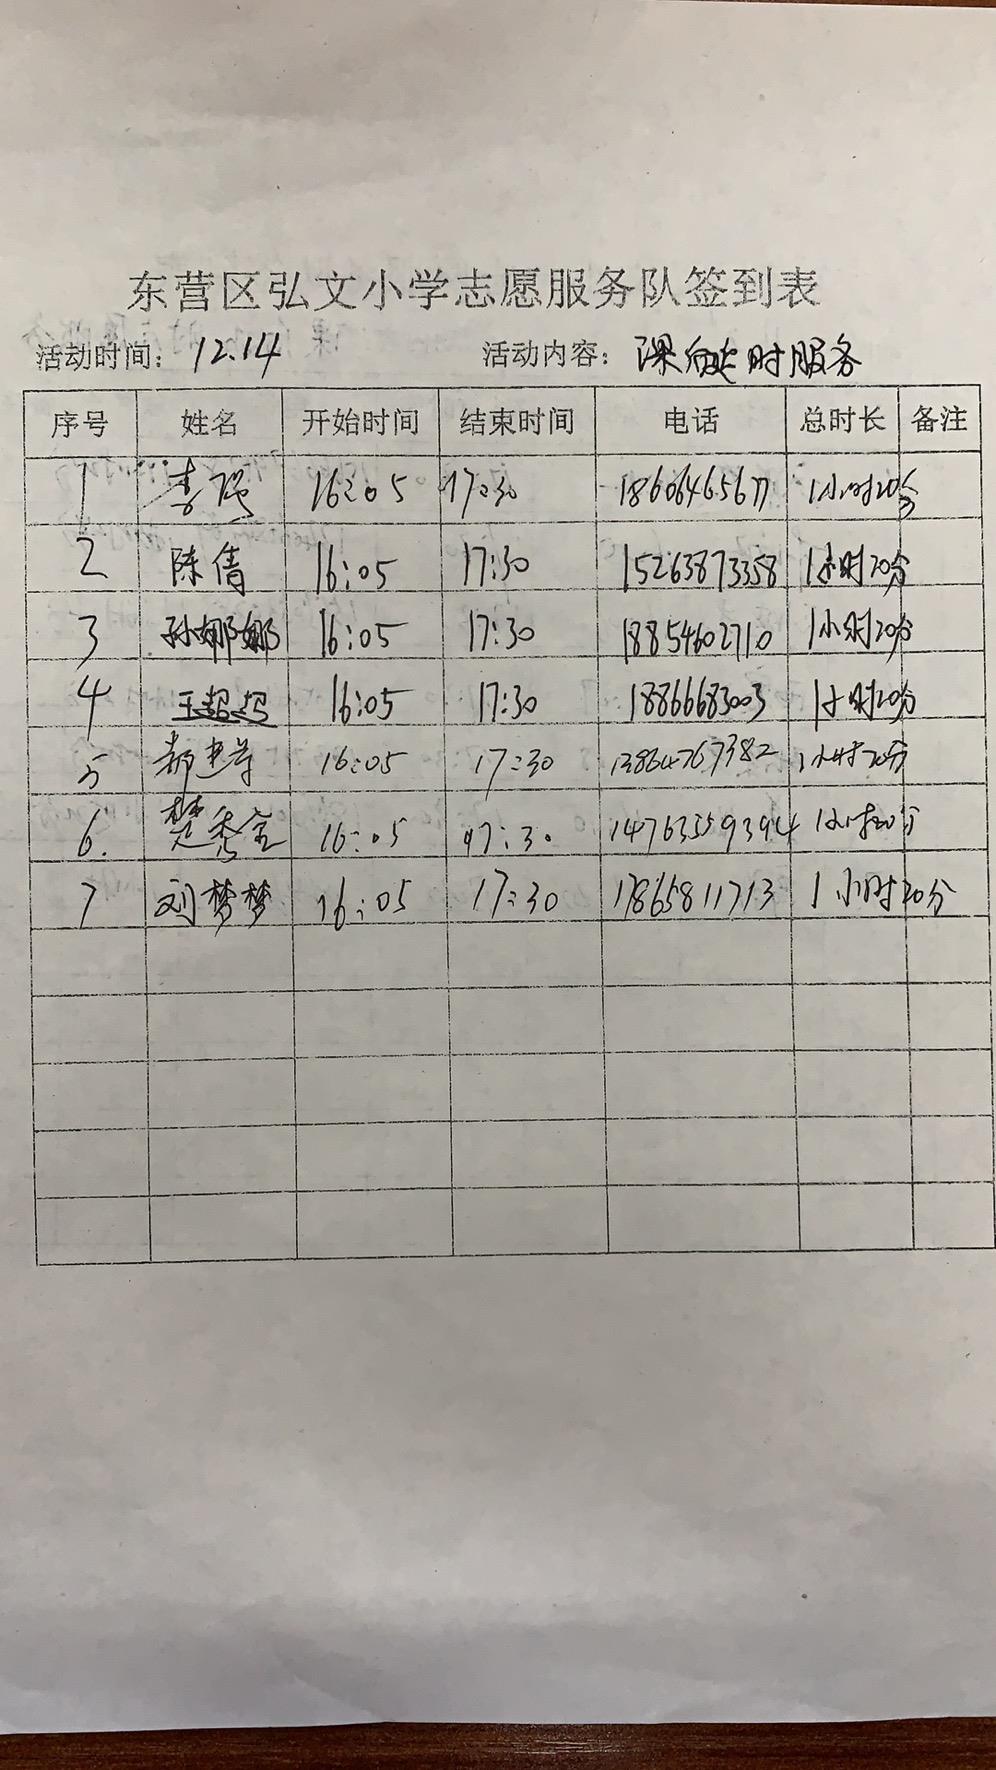 东营区弘文小学志愿服务队签到表
活动时间： 12.14 活动内容： 课后延时服务
序号 姓名 开始时间 结束时间 电话 总时长 备注
1 李强 16:05 17:30 18606465677 1小时20分
2 陈倩 16:05 17:30 15263873358 1小时20分
3 孙娜娜 16:05 17:30 18854602710 1小时20分
4 王超超 16:05 17:30 18866683003 1小时20分
5 16:05 17:30 13864767382 1小时20分
6. 楚秀 16:05 17:30 14763559394 1小时20分
7 刘梦梦 16:05 17:30 17865811713 1小时20分